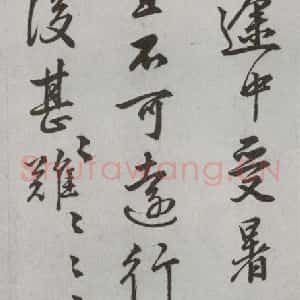 途中受暑
不可遠行
後甚難
ShufaWang.CN